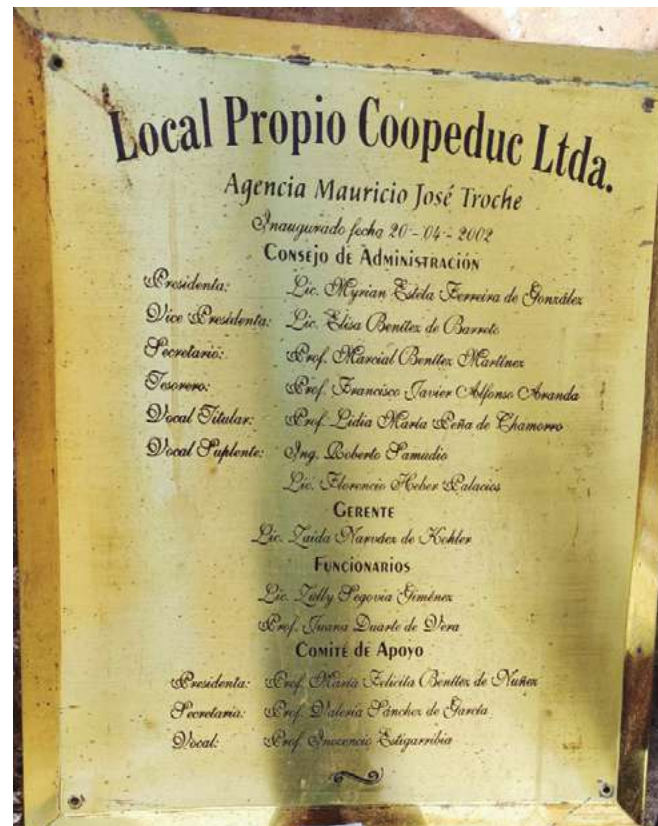 Local Propio Coopeduc Ltda.
Agencia Mauricio José Troche
Inaugurado fecha 20 - 04 - 2002
Consejo de Administración
Presidenta: Lic. Myrian Estela Ferreira de González
Vice Presidenta: Lic. Elisa Benítez de Barreto
Secretario: Prof. Marcial Benítez Martínez
Tesorero: Prof. Francisco Javier Alfonso Aranda
Vocal Titular: Prof. Lidia María Peña de Chamorro
Vocal Suplente: Ing. Roberto Samudio
Lic. Florencio Heber Palacios
Gerente
Lic. Zaida Narváez de Kohler
Funcionarios
Lic. Zully Segovia Giménez
Prof. Juana Duarte de Vera
Comité de Apoyo
Presidenta: Prof. María Felicita Benítez de Nuñez
Secretaria: Prof. Valeria Sánchez de García
Vocal: Prof. Inocencio Estigarribia